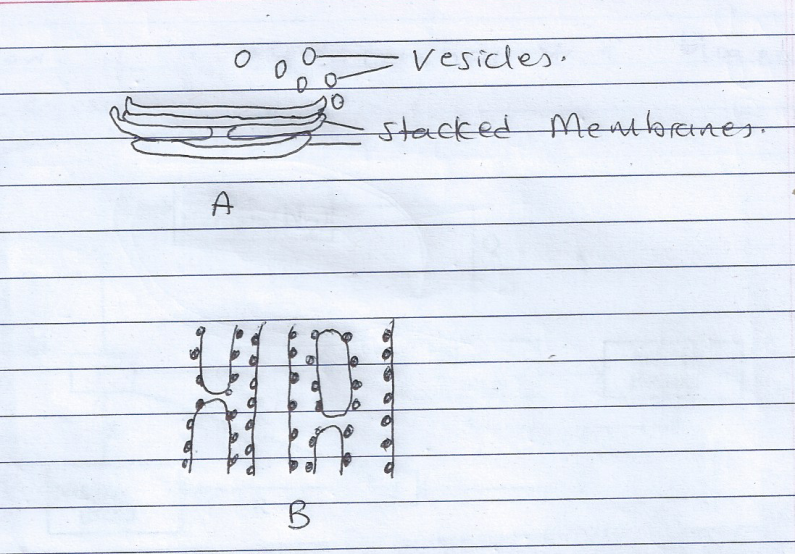 Vesicles.
Stacked Membranes.
A
B